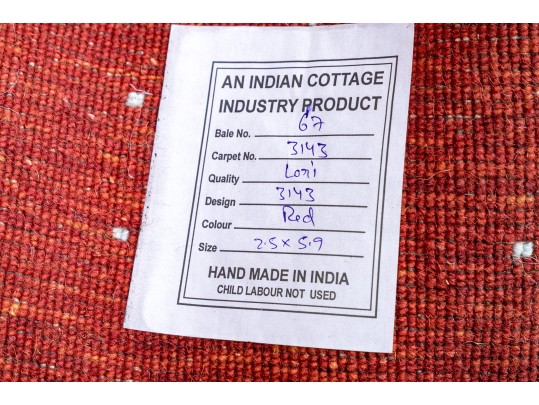 AN INDIAN COTTAGE
INDUSTRY PRODUCT
Bale No. 67
Carpet No. 3143
Quality Lori
Design 3143
Colour Red
Size 2.5 x 5.9
HAND MADE IN INDIA
CHILD LABOUR NOT USED